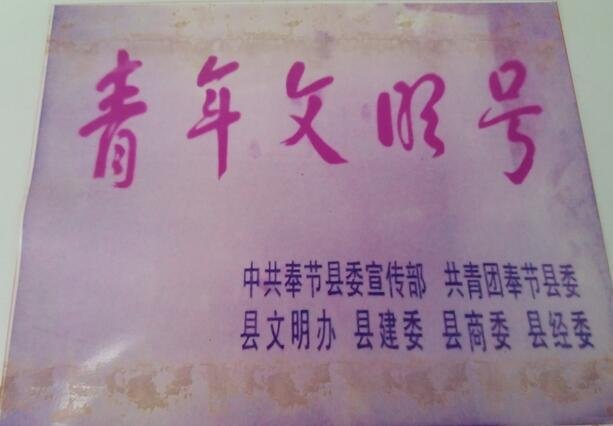 青年文明号
中共奉节县委宣传部 共青团奉节县委
县文明办 县建委 县商委 县经委